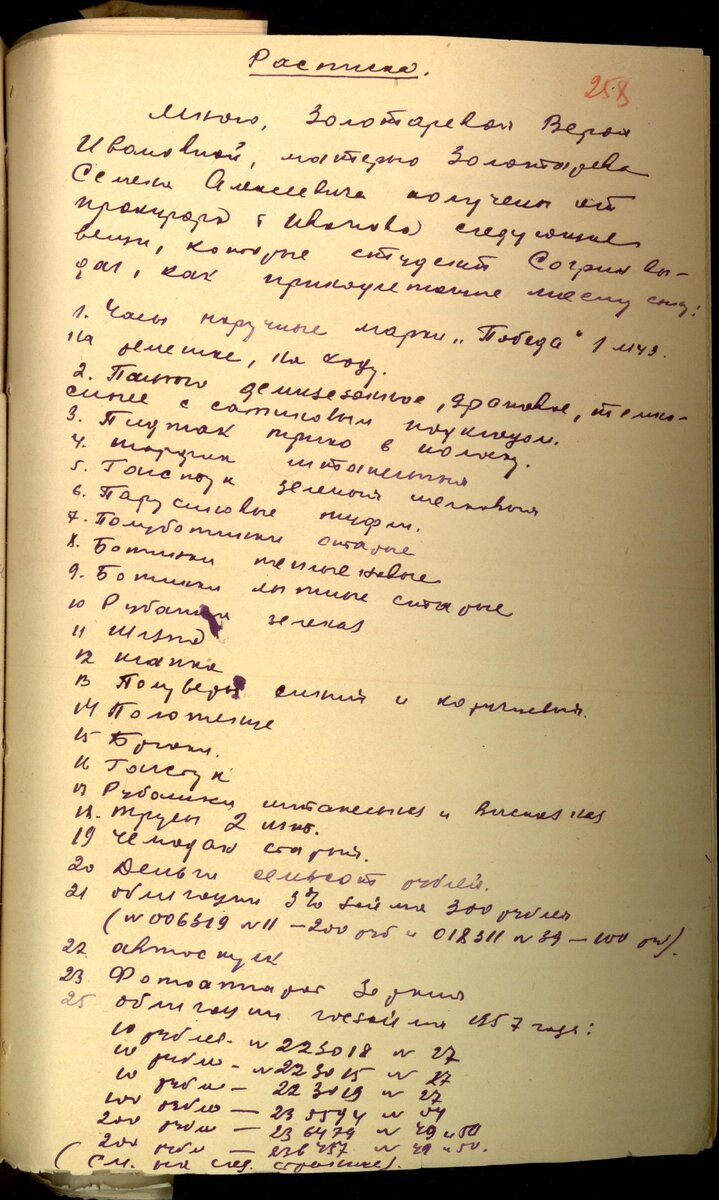 Расписка.
258
Мною, Золотаревой Верой
Ивановной, матерью Золотарева
Семена Алексеевича получены от
прокурора т Иванова следующие
вещи, которые студент Согрин вы-
дал, как принадлежащие моему сыну:
1. Часы наручные марки "Победа" 1 мчз.
на ремешке, на ходу.
2. Пальто демисезонное, драповое, темно-
синее с сатиновым подкладом.
3. Пиджак трико в полоску.
4. шарфик штапельный
5. Галстук зеленый шелковый
6. Парусиновые туфли.
7. Полуботинки старые
8. Ботинки теплые новые
9. Ботинки лыжные старые
10 Рубашка зеленая
11
12 шапка
13 Полувер синий и коричневый.
14 Полотенце
15 Брюки.
16 Галстук
17 Рубашки штапельная и вискозная
18. трусы 2 шт.
19 чемодан старый.
20 Деньги семьсот рублей.
21 облигации 3% займа 300 рублей
(N 006319 N 11 – 200 руб и 018311 N 39 – 100 руб).
22
23 Фотоаппарат Зоркий
25 облигации госзайма 1957 года:
10 рублей - N 223018 N 27
10 рубл - N 223015 N 27
10 рубл — 223019 N 27
100 рубл — N 04
200 рубл — 236479 N 49 и 50
200 рубл — N 49 и 50.
(См. на след. странице).